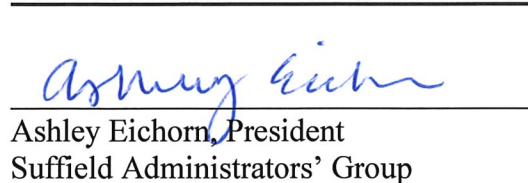 Ashley Eichorn
Ashley Eichorn, President
Suffield Administrators' Group